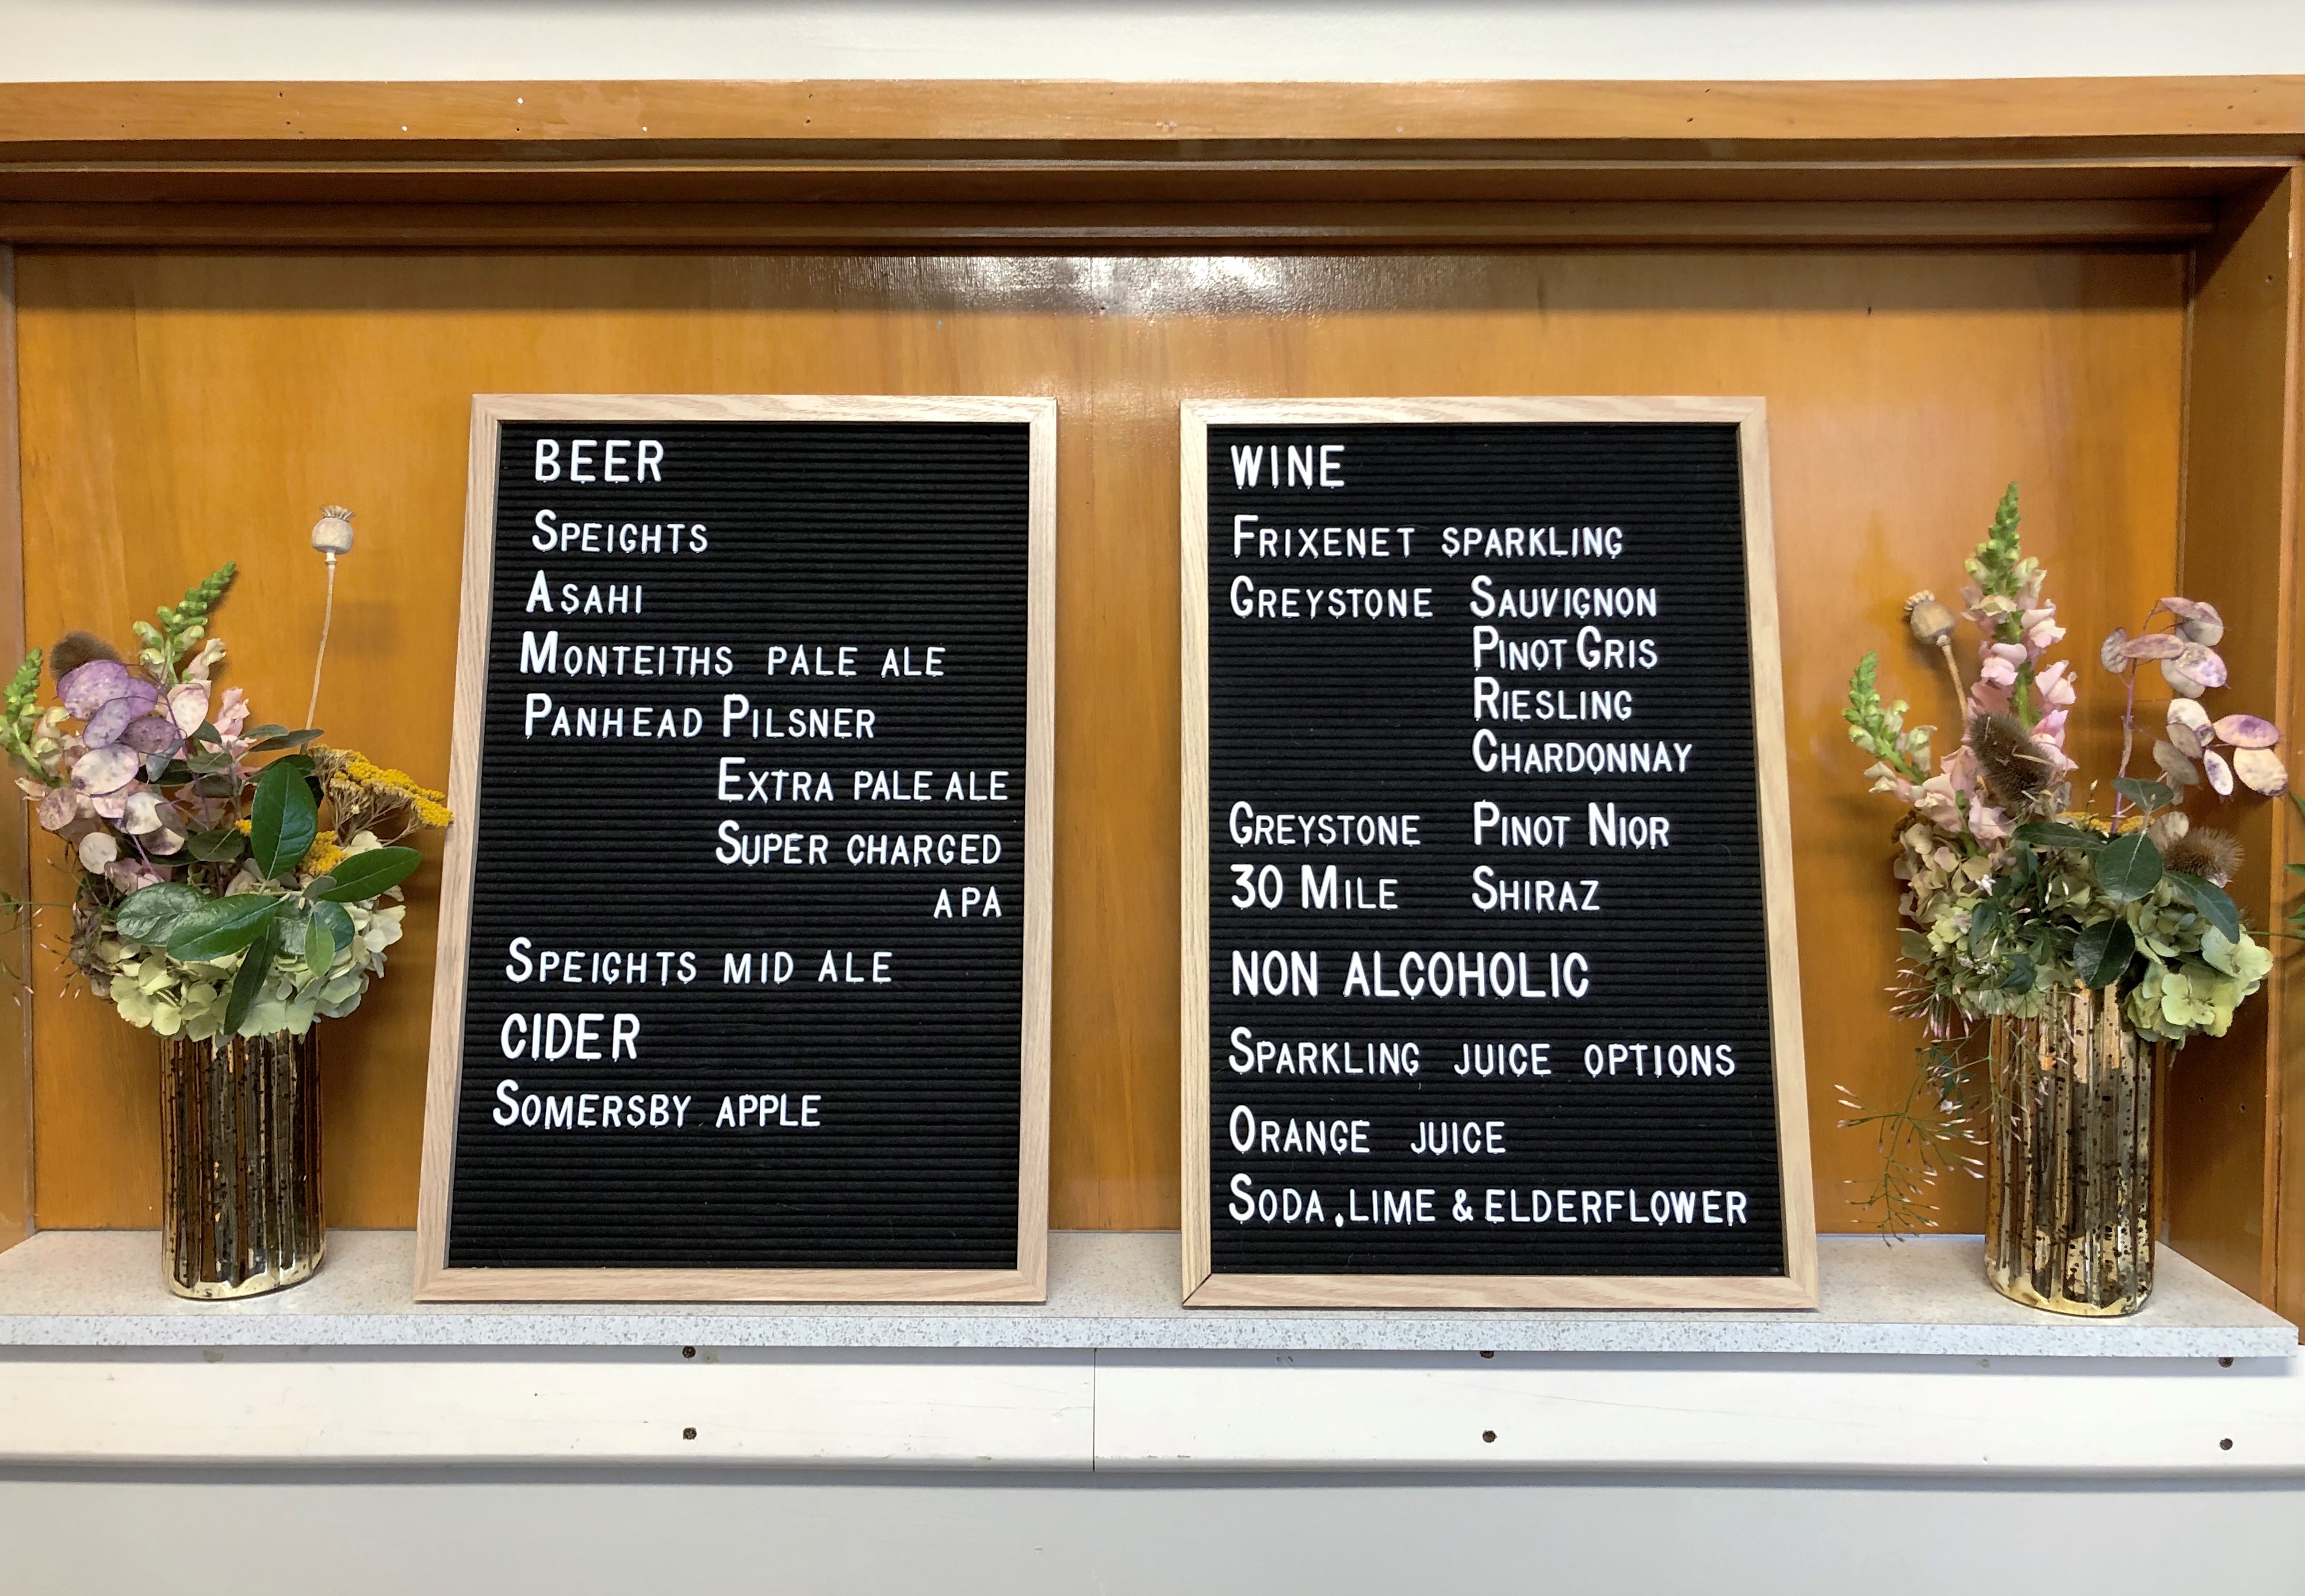 BEER
SPEIGHTS
ASAHI
MONTEITHS PALE ALE
PANHEAD PILSNER
EXTRA PALE ALE
SUPER CHARGED
APA
SPEIGHTS MID ALE
CIDER
SOMERSBY APPLE
WINE
FRIXENET SPARKLING
GREYSTONE SAUVIGNON
PINOT GRIS
RIESLING
CHARDONNAY
GREYSTONE PINOT NIOR
30 MILE SHIRAZ
NON ALCOHOLIC
SPARKLING JUICE OPTIONS
ORANGE JUICE
SODA, LIME & ELDERFLOWER